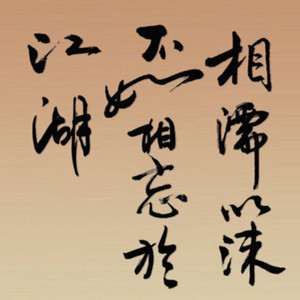 相濡以沫
不如相忘於
江湖